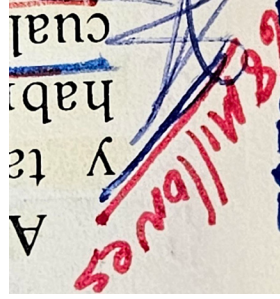 A
y ta
habi
cual
8 millones